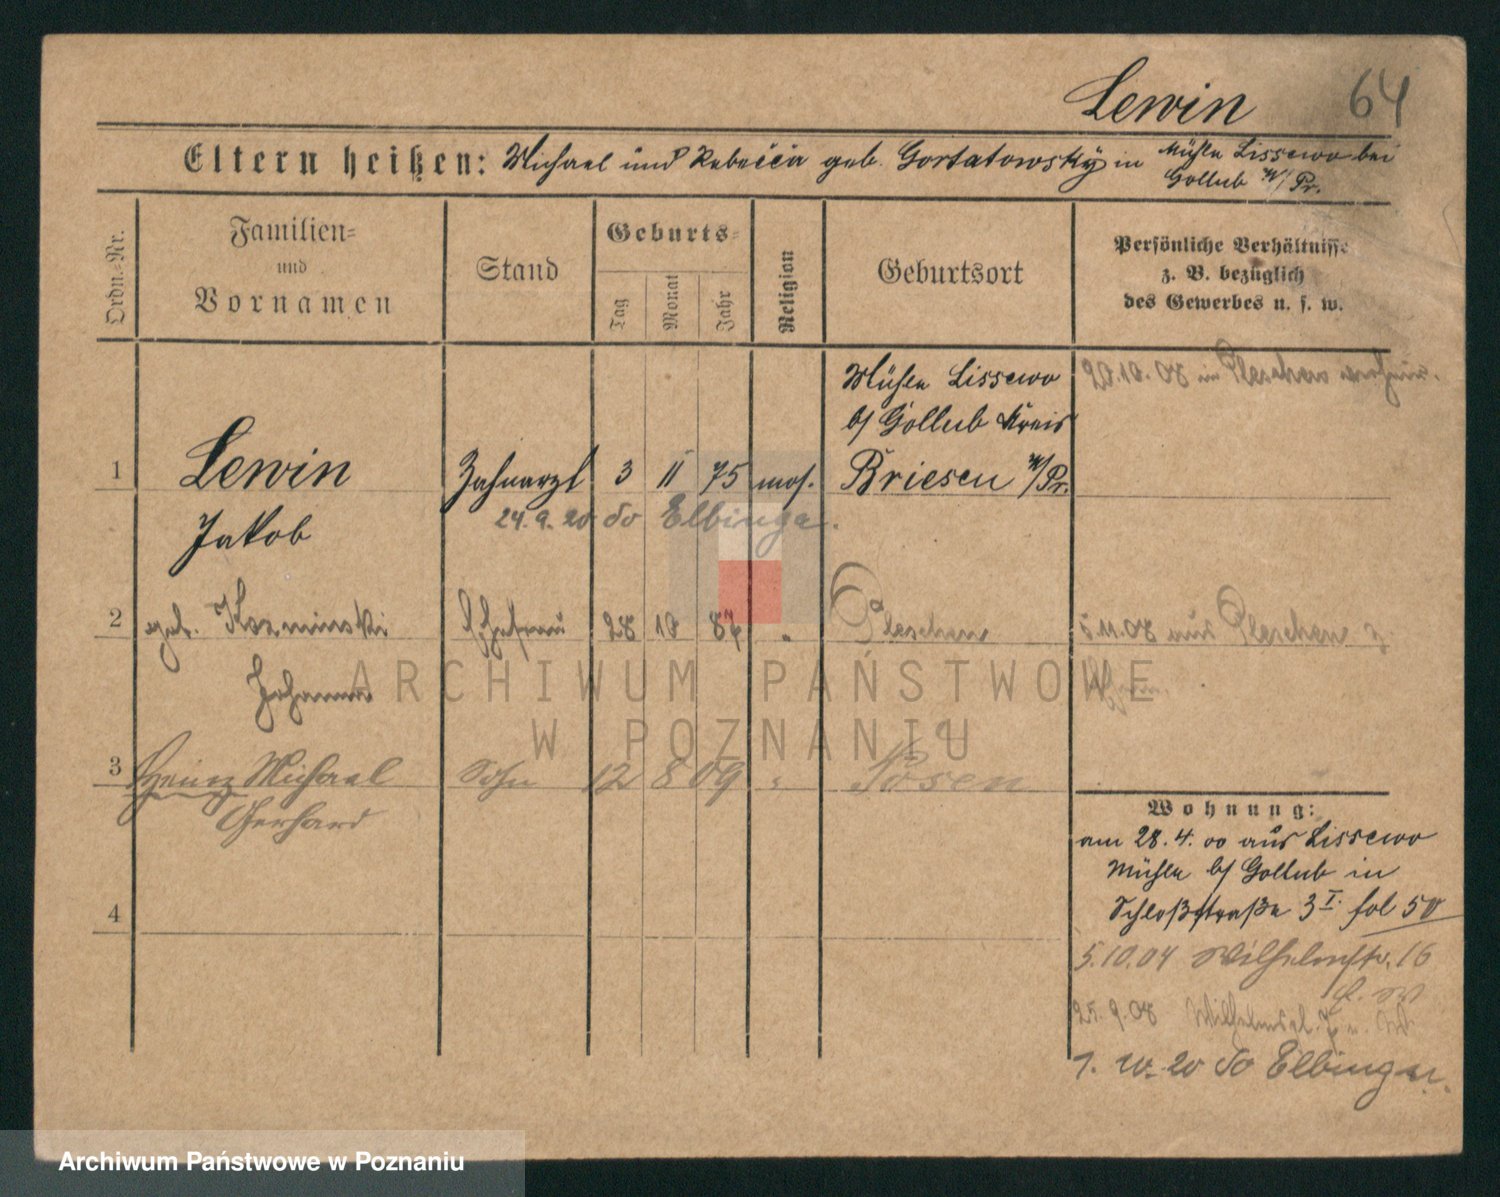 Lewin 64
Eltern heißen: Michael und Rebecca geb. Gortatowsky in Mühle Lissewo bei
Gollub W/Pr.
Ordn.-Nr.
Familien-
und
Vornamen
Stand
Geburts-
Tag
Monat
Jahr
Religion
Geburtsort
Persönliche Verhältnisse
z. B. bezüglich
des Gewerbes u. s. w.
Mühle Lissewo
b/ Gollub Kreis
1 Lewin Zahnarzt 3 11 75 mos. Briesen W/Pr.
20.10.08 in Pleschen
24.9.20 do Elbinga.
Jakob
2 geb. Kozminski Ehefrau 28 10 84 " Pleschen
5.11.08 aus Pleschen z.
Johanna
3 Heinz Michael Sohn 12 8 09 " Posen
Gerhard
4
Wohnung:
am 28.4.00 aus Lissewo
Mühle b/ Gollub in
Schloßstraße 3 I. fol 50
5.10.04 Wilhelmstr. 16
25.9.08
1. 10. 20 do Elbinga.
ARCHIWUM PAŃSTWOWE
W POZNANIU
Archiwum Państwowe w Poznaniu